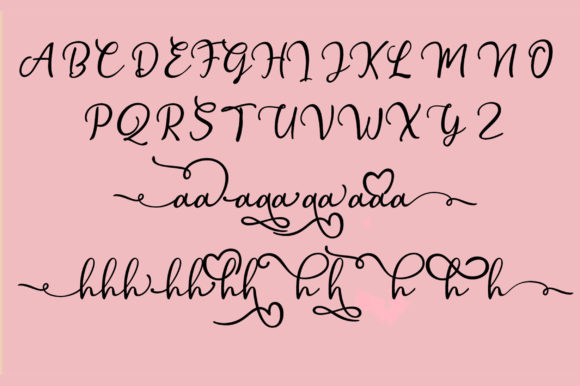 A B C D E F G H I J K L M N O
P Q R S T U V W X Y Z
aa aaa aa aaa
hhh hhhh h h h h h